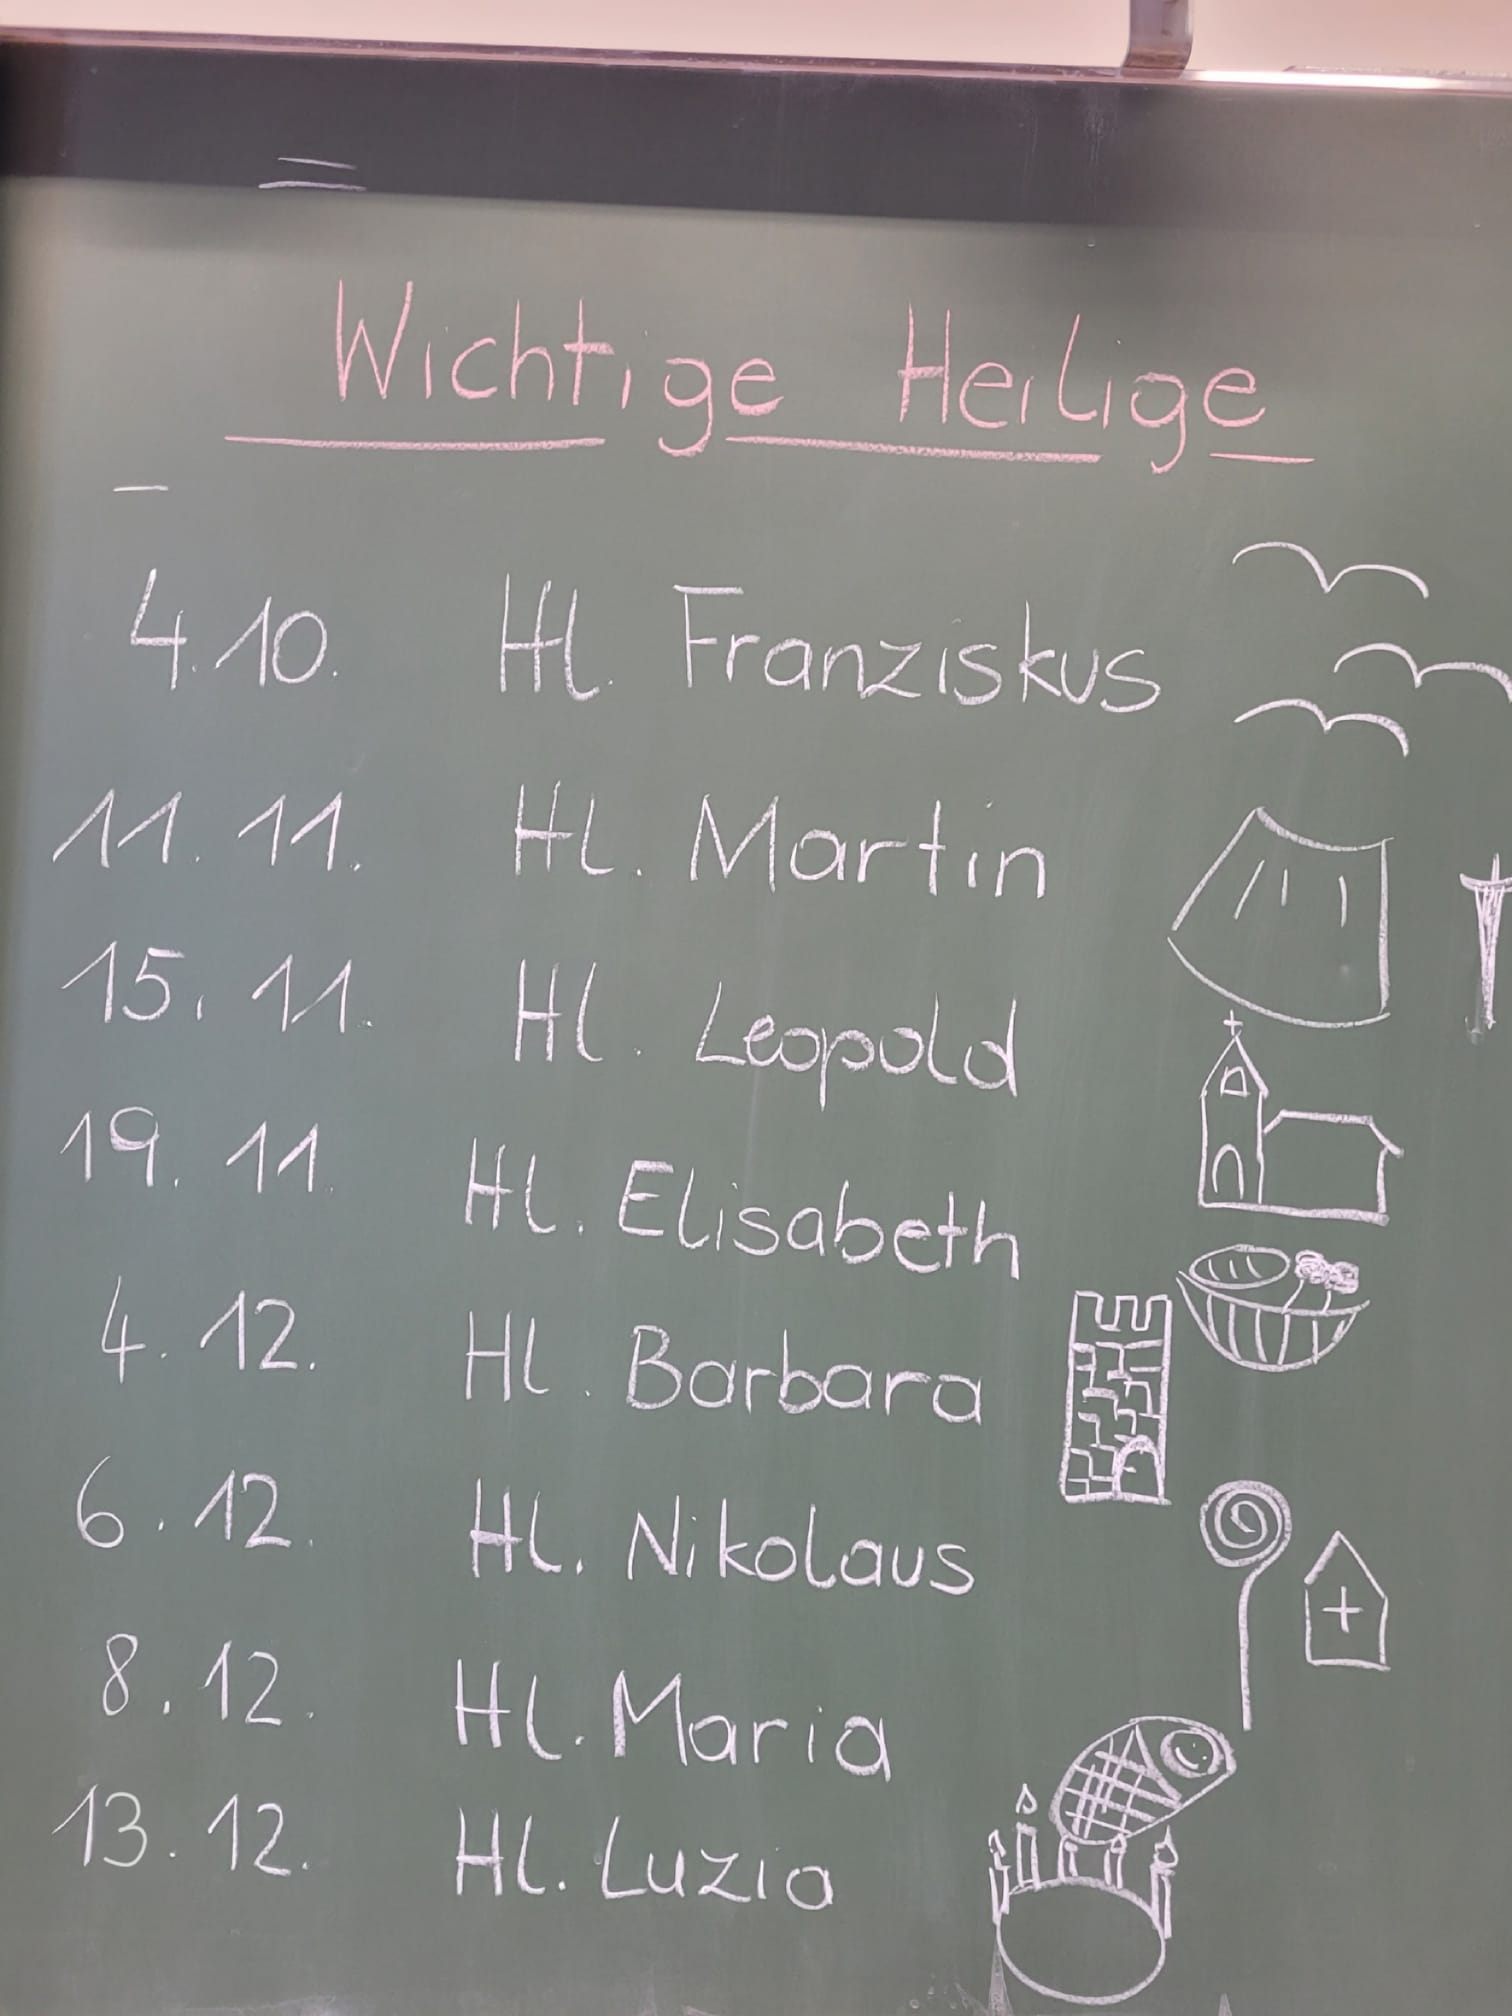 Wichtige Heilige
4.10. Hl. Franziskus
11.11. Hl. Martin
15.11. Hl. Leopold
19.11. Hl. Elisabeth
4.12. Hl. Barbara
6.12. Hl. Nikolaus
8.12. Hl. Maria
13.12. Hl. Luzia